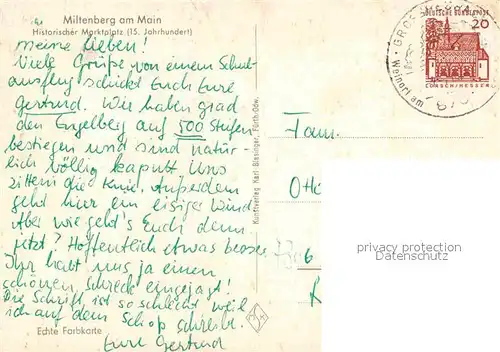 Miltenberg am Main
Historischer Marktplatz (15. Jahrhundert)
meine Lieben!
Viele Grüße von einem Schul-
ausflug schickt Euch Eure
Gertrud. Wir haben grad
den Engelberg auf 500 Stufen
bestiegen und sind natür-
lich völlig kaputt. Uns
zittern die Knie. Außerdem
geht hier ein eisiger Wind
Aber wie geht's Euch denn
jetzt? Hoffentlich etwas besser
Ihr habt uns ja einen
schönen Schreck eingejagt!
Die Schrift ist so schlecht weil
ich auf dem Schoß schreibe.
Eure Gertrud
Echte Farbkarte
Kunstverlag Karl Blasinger, Fürth-Odw.
DEUTSCHE BUNDESPOST
20
LORSCH/HESSEN
Fam.
privacy protection
Datenschutz